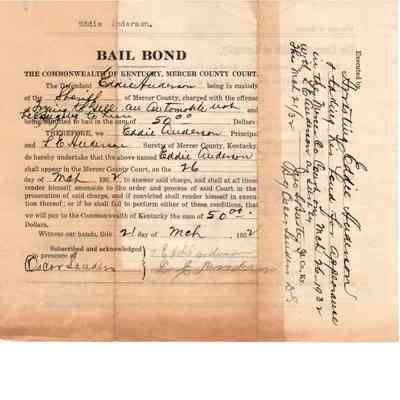 Eddie Anderson.
BAIL BOND
THE COMMONWEALTH OF KENTUCKY, MERCER COUNTY COURT.
The Defendant Eddie Anderson, being in custody
of the Sheriff of Mercer County, charged with the offense
trying to sell an automobile not
belonging to him
being admitted to bail in the sum of 50 00 Dollars
THEREFORE, we Eddie Anderson Principal
and L E Anderson Surety of Mercer County, Kentucky,
do hereby undertake that the above named Eddie Anderson
shall appear in the Mercer County Court, on the 26
day of Mch, 1932, to answer said charge, and shall at all times
render himself amenable to the order and process of said Court in the
prosecution of said charge, and if convicted shall render himself in execu-
tion thereof; or if he shall fail to perform either of these conditions, that
we will pay to the Commonwealth of Kentucky the sum of 50 00
Dollars.
Witness our hands, this 21 day of Mch 1932
Subscribed and acknowledged
in presence of
Eddie Anderson
L. E. Anderson
Oscar Sanders
Executed by
Arresting Eddie Anderson
& taking his bond for appearance
in the Mercer Co Court Mch 26, 1932
with L E Anderson surety
This Mch 21/32
By Oscar Sanders D.S.